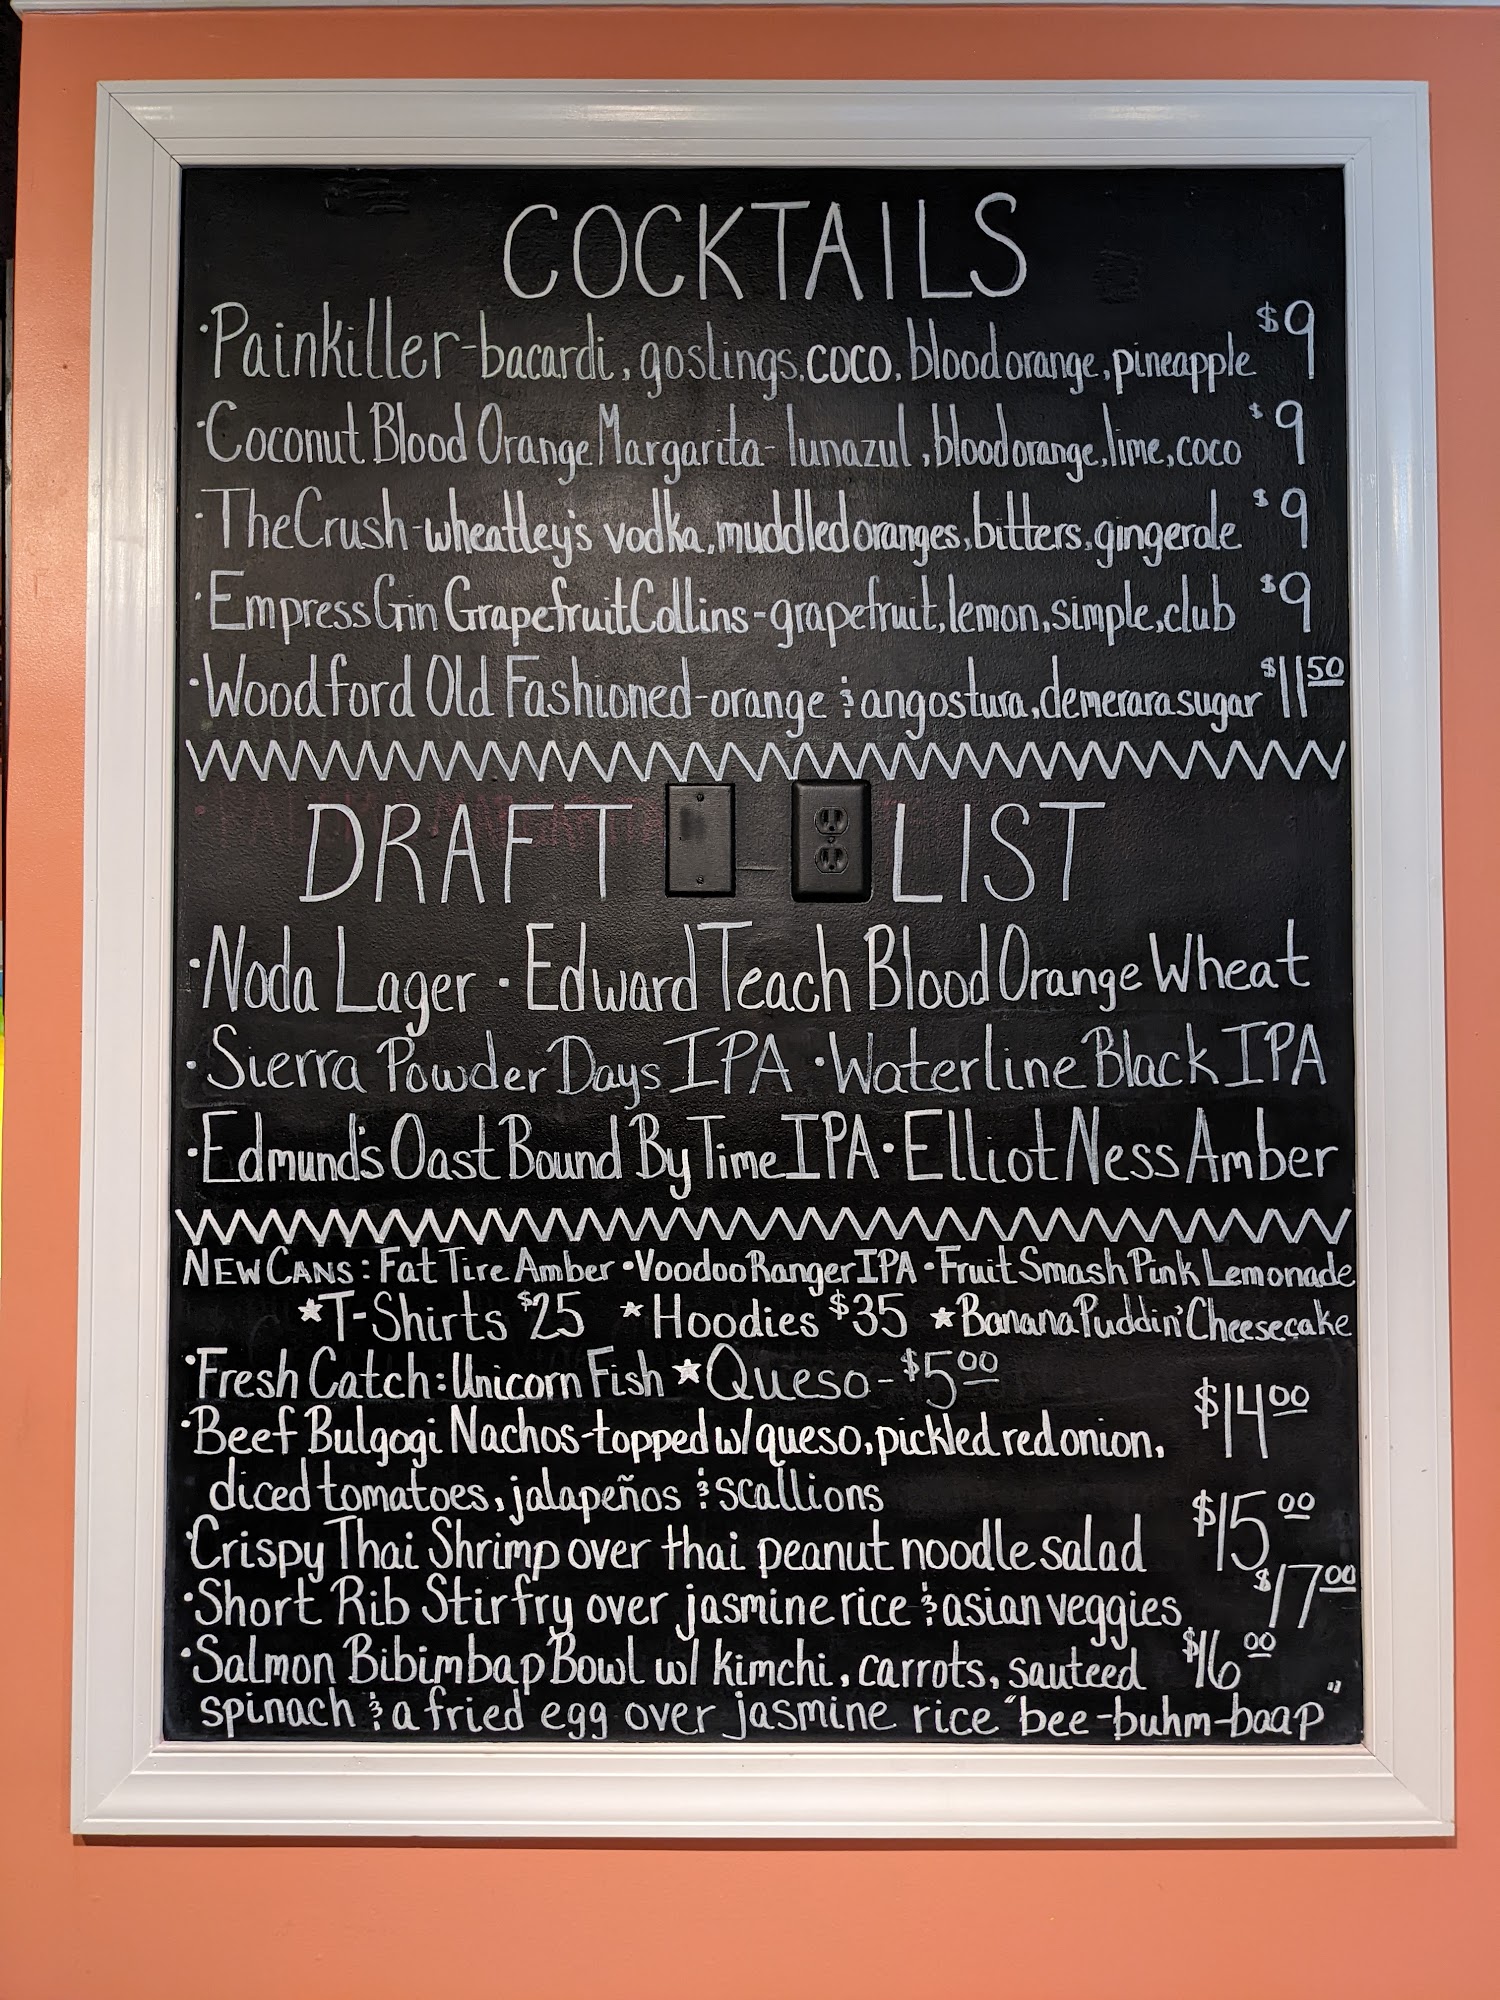 COCKTAILS
·Painkiller-bacardi, goslings, coco, blood orange, pineapple $9
·Coconut Blood Orange Margarita- lunazul, blood orange, lime, coco $9
·The Crush-wheatley's vodka, muddled oranges, bitters, gingerale $9
·Empress Gin Grapefruit Collins-grapefruit, lemon, simple, club $9
·Woodford Old Fashioned-orange & angostura, demerara sugar $11 50
DRAFT LIST
·Noda Lager ·Edward Teach Blood Orange Wheat
·Sierra Powder Days IPA ·Waterline Black IPA
·Edmund's Oast Bound By Time IPA ·Elliot Ness Amber
NEW CANS: Fat Tire Amber ·Voodoo Ranger IPA ·Fruit Smash Pink Lemonade
★T-Shirts $25 ★Hoodies $35 ★Banana Puddin' Cheesecake
·Fresh Catch: Unicorn Fish ★Queso-$5 00
·Beef Bulgogi Nachos-topped w/ queso, pickled red onion, $14 00
diced tomatoes, jalapeños & scallions
·Crispy Thai Shrimp over thai peanut noodle salad $15 00
·Short Rib Stirfry over jasmine rice & asian veggies $17 00
·Salmon Bibimbap Bowl w/ kimchi, carrots, sauteed $16 00
spinach & a fried egg over jasmine rice "bee-buhm-baap"